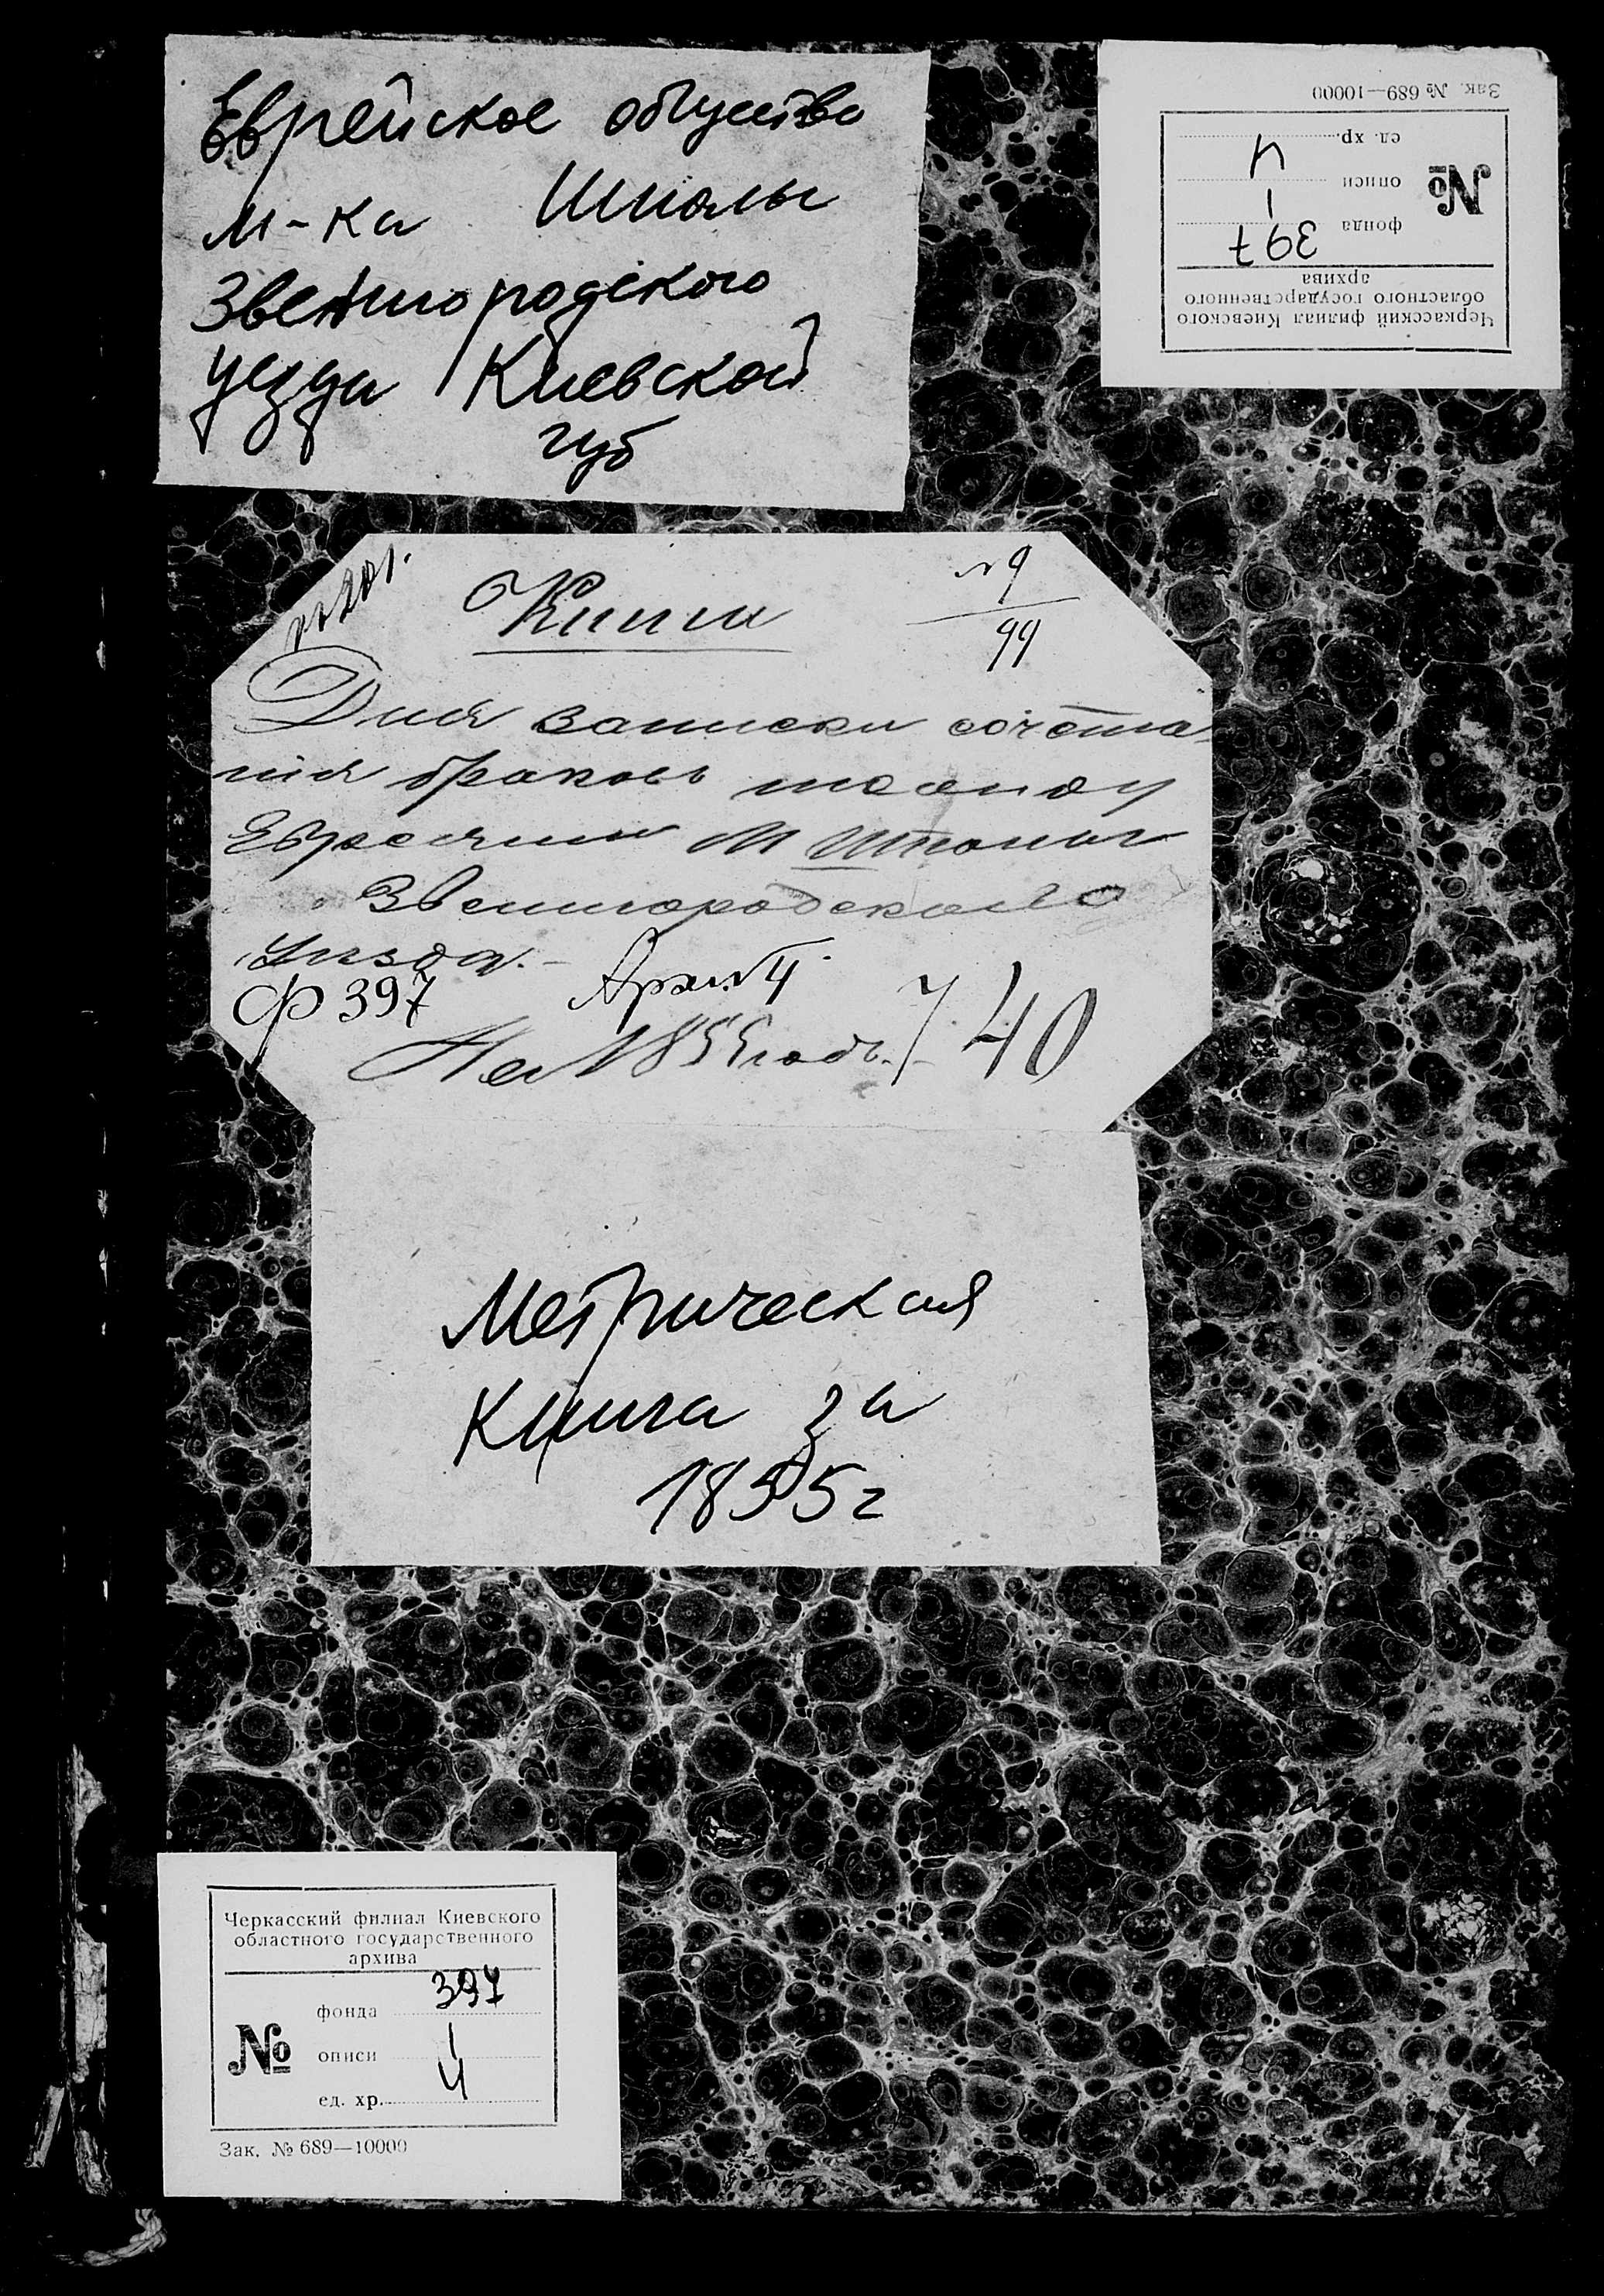 Еврейское общество
м-ка Шполы
Звенигородского
уезда Киевской
губ
Зак. № 689—10000
ед. хр. 4
№ описи 1
фонда 397
Черкасский филиал Киевского
областного государственного
архива
Книга
№ 9
99
Для записки сочета-
нія браковъ между
Евреями М Шполы
Звенигородскаго
Уѣзда.-
Ф 397 Арх. № 4
На 1855 годъ. 40
Метрическая
Книга за
1855 г
Черкасский филиал Киевского
областного государственного
архива
фонда 397
№ описи 1
ед. хр. 4
Зак. № 689—10000